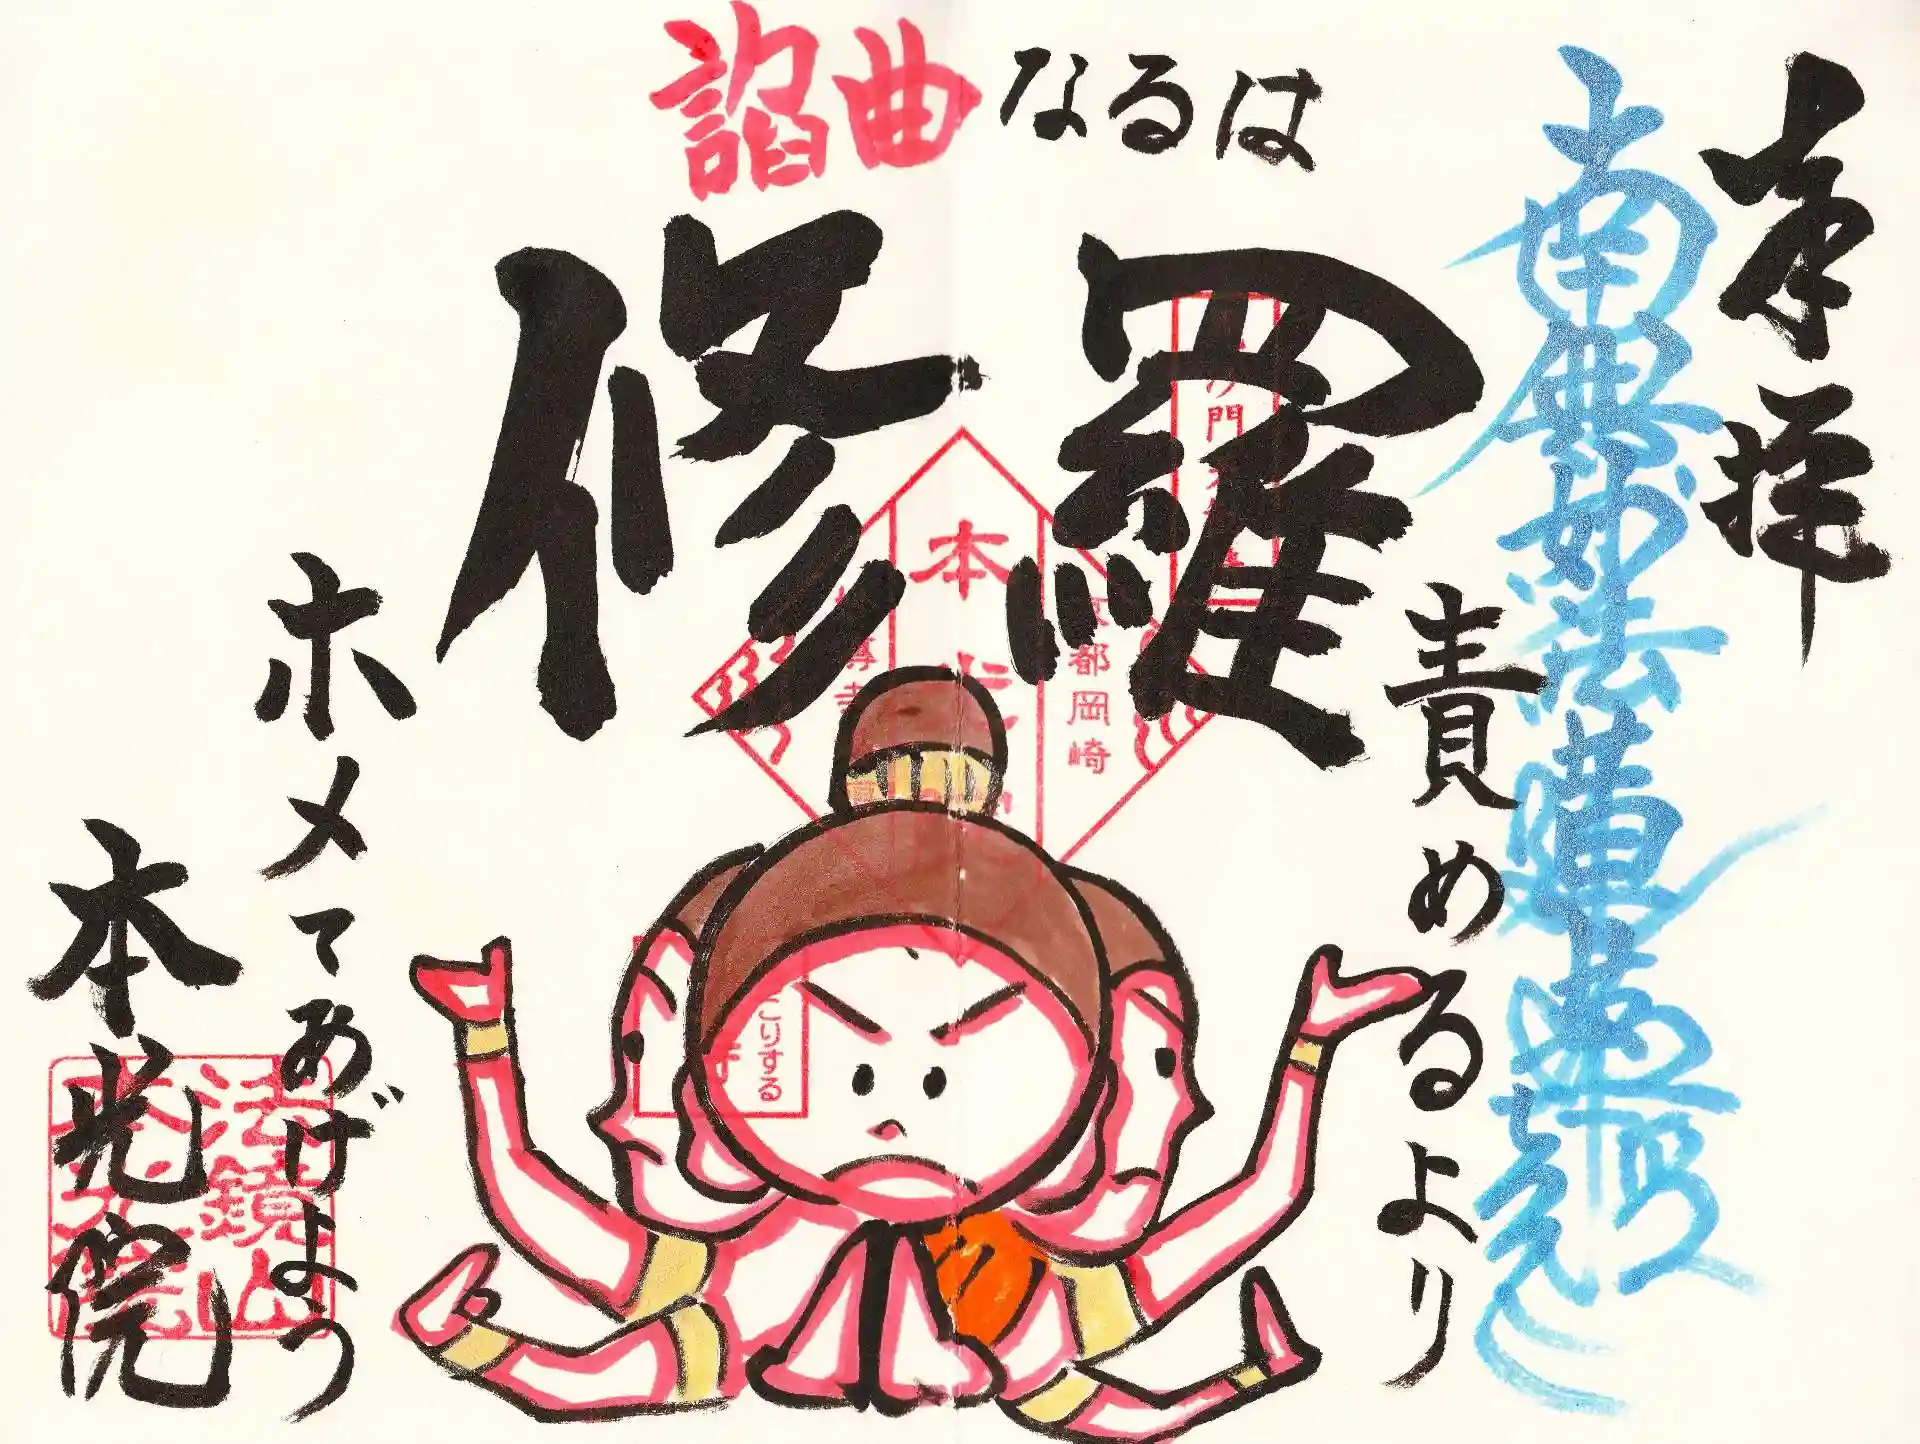 奉拝
南無妙法蓮華経
諂曲なるは
修羅
責めるより
ホメてあげよう
本光院
本
都岡崎
門
こりする
法鏡山
本光院